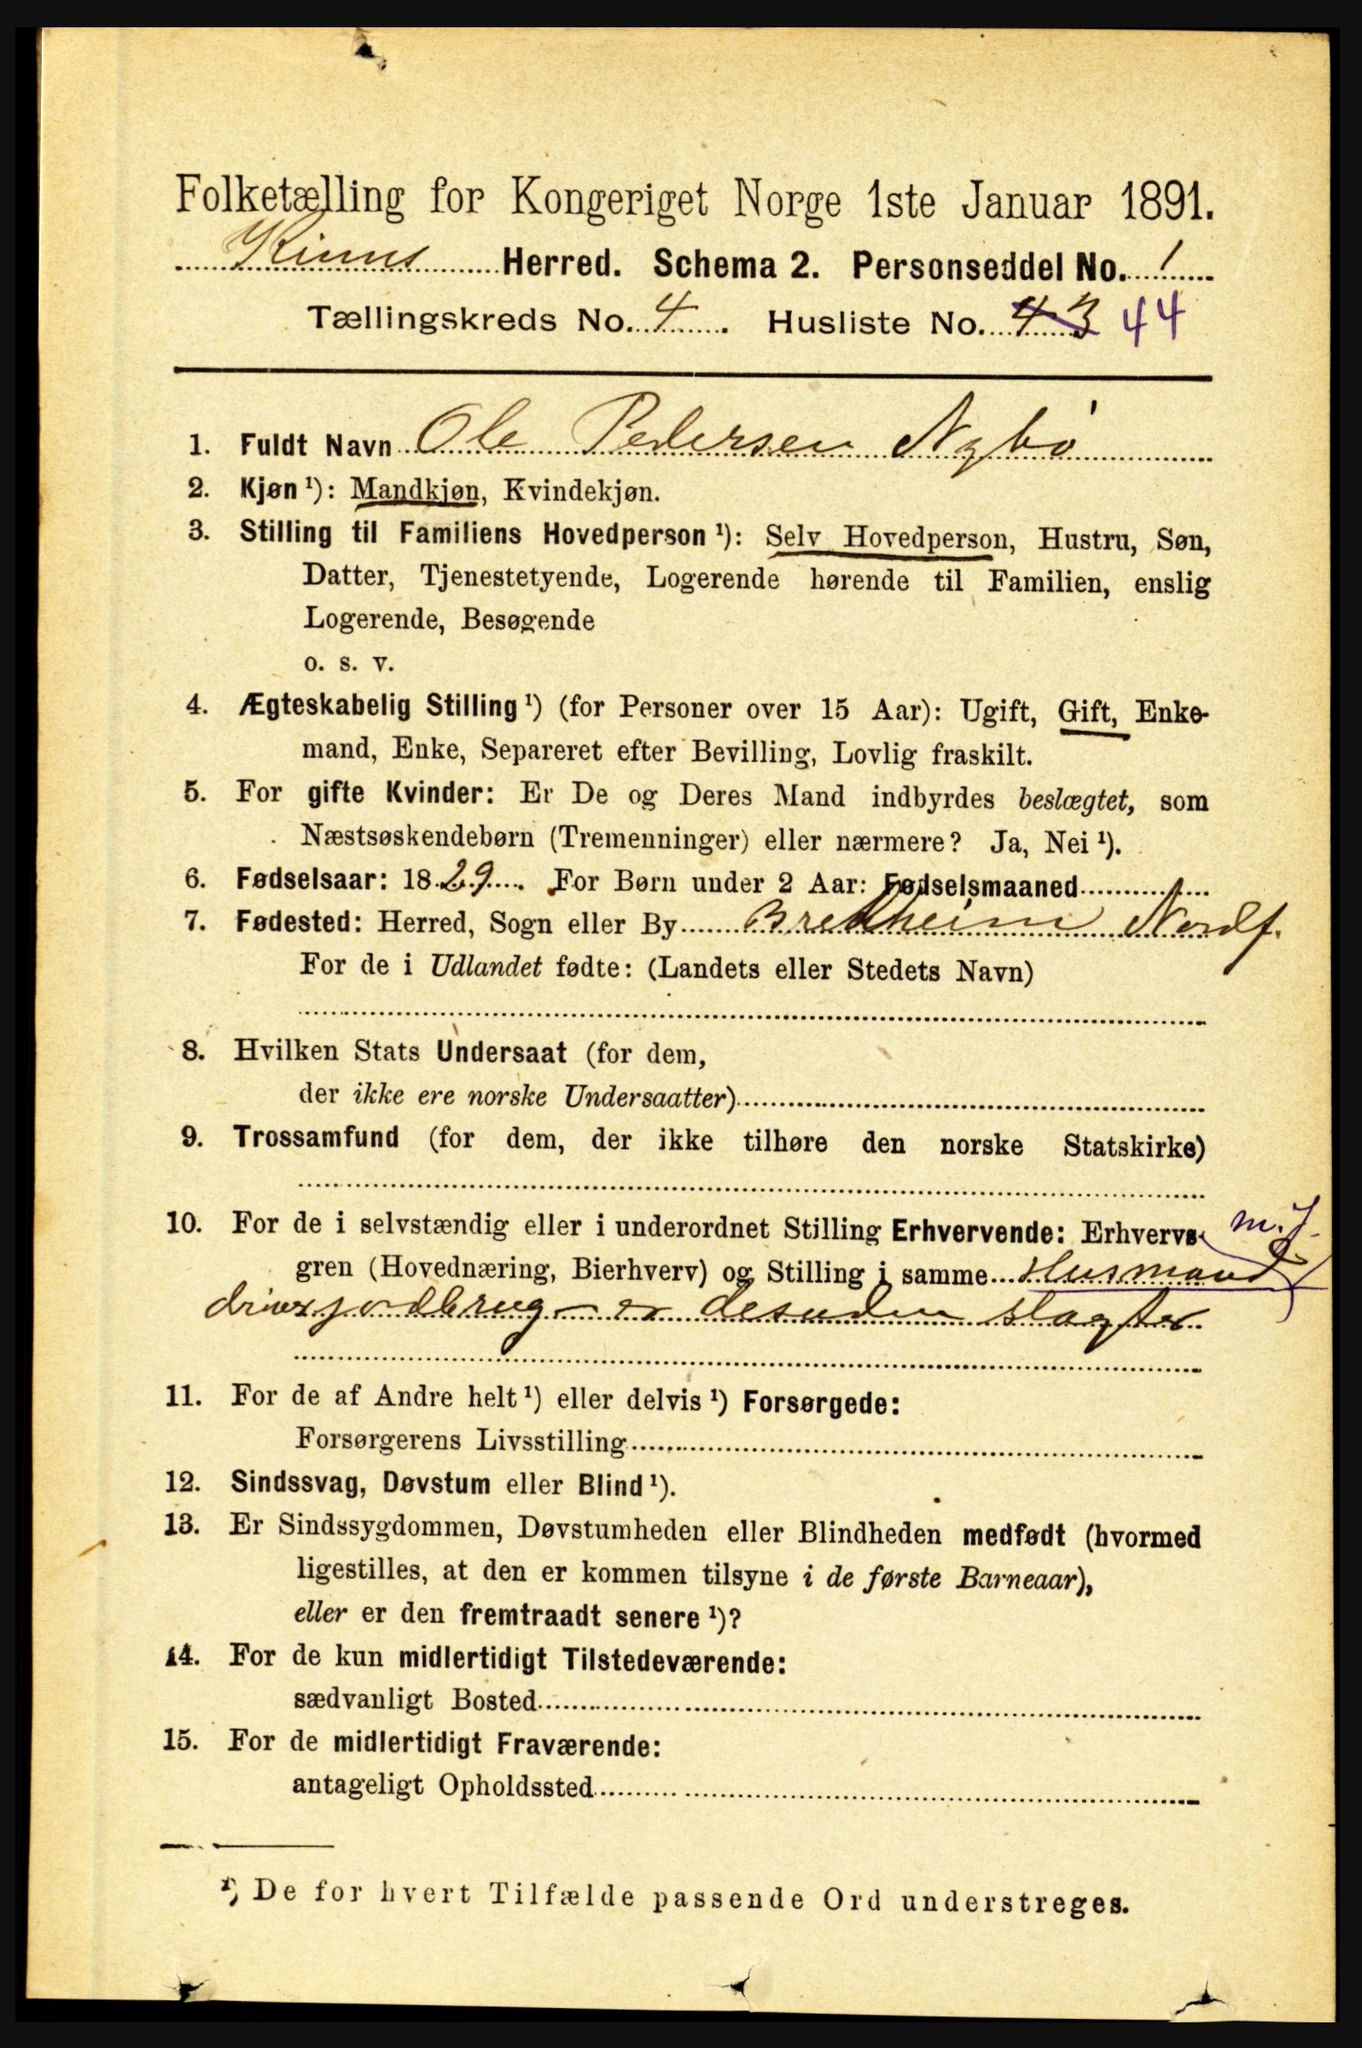 Folketælling for Kongeriget Norge 1ste Januar 1891.
Kinns Herred. Schema 2. Personseddel No. 1
Tællingskreds No. 4. Husliste No. 43 44
1. Fuldt Navn Ole Pedersen Nybø
2. Kjøn ¹): Mandkjøn, Kvindekjøn.
3. Stilling til Familiens Hovedperson ¹): Selv Hovedperson, Hustru, Søn,
Datter, Tjenestetyende, Logerende hørende til Familien, enslig
Logerende, Besøgende
o. s. v.
4. Ægteskabelig Stilling ¹) (for Personer over 15 Aar): Ugift, Gift, Enke-
mand, Enke, Separeret efter Bevilling, Lovlig fraskilt.
5. For gifte Kvinder: Er De og Deres Mand indbyrdes beslægtet, som
Næstsøskendebørn (Tremenninger) eller nærmere? Ja, Nei ¹).
6. Fødselsaar: 1829. For Børn under 2 Aar: Fødselsmaaned
7. Fødested: Herred, Sogn eller By Brekheim Nordf.
For de i Udlandet fødte: (Landets eller Stedets Navn)
8. Hvilken Stats Undersaat (for dem,
der ikke ere norske Undersaatter)
9. Trossamfund (for dem, der ikke tilhøre den norske Statskirke)
10. For de i selvstændig eller i underordnet Stilling Erhvervende: Erhvervs- m. J.
gren (Hovednæring, Bierhverv) og Stilling i samme Husmand
driver jordbrug – er desuden slagter
11. For de af Andre helt ¹) eller delvis ¹) Forsørgede:
Forsørgerens Livsstilling
12. Sindssvag, Døvstum eller Blind ¹).
13. Er Sindssygdommen, Døvstumheden eller Blindheden medfødt (hvormed
ligestilles, at den er kommen tilsyne i de første Barneaar),
eller er den fremtraadt senere ¹)?
14. For de kun midlertidigt Tilstedeværende:
sædvanligt Bosted
15. For de midlertidigt Fraværende:
antageligt Opholdssted
¹) De for hvert Tilfælde passende Ord understreges.